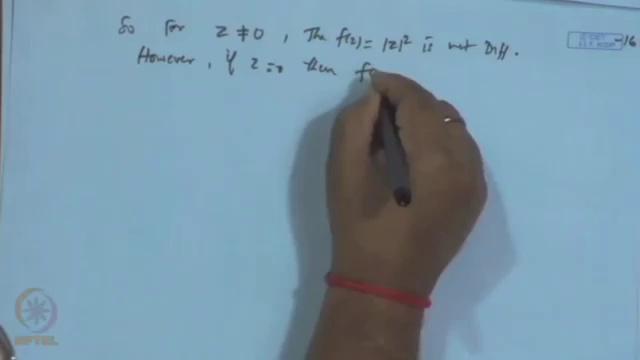 So for z ≠ 0, The f(z) = |z|² is not Diff.
However, if z = 0 then f
16
NPTEL